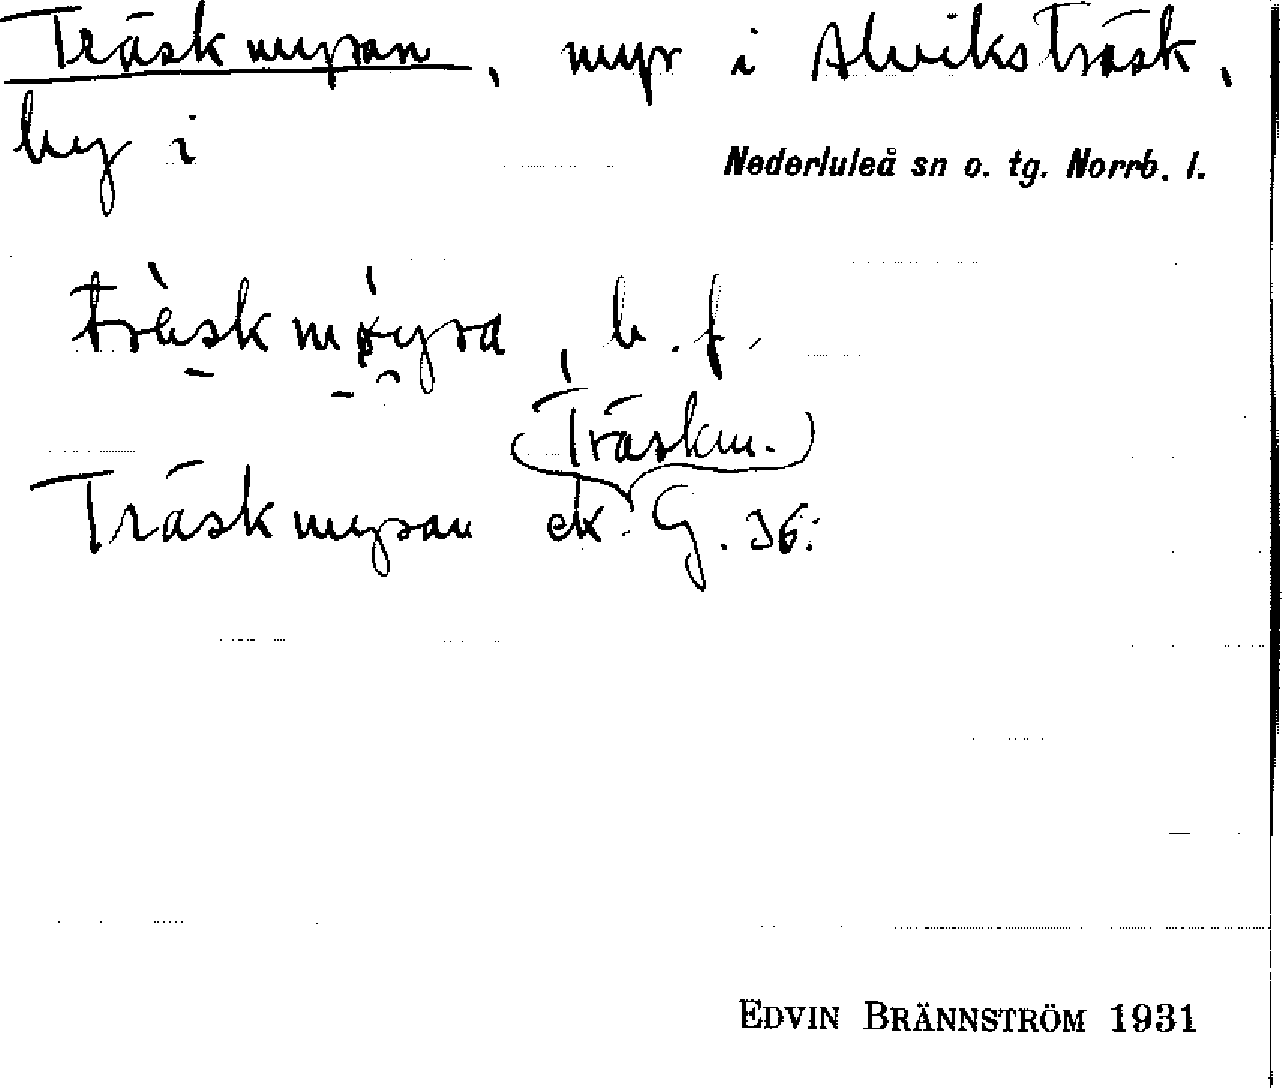 Träskmyran, myr i Alviksträsk,
by i
Nederluleå sn o. tg. Norrb. l.
b. f.
(Träskm.)
Träskmyran ek. G. 36:
EDVIN BRÄNNSTRÖM 1931